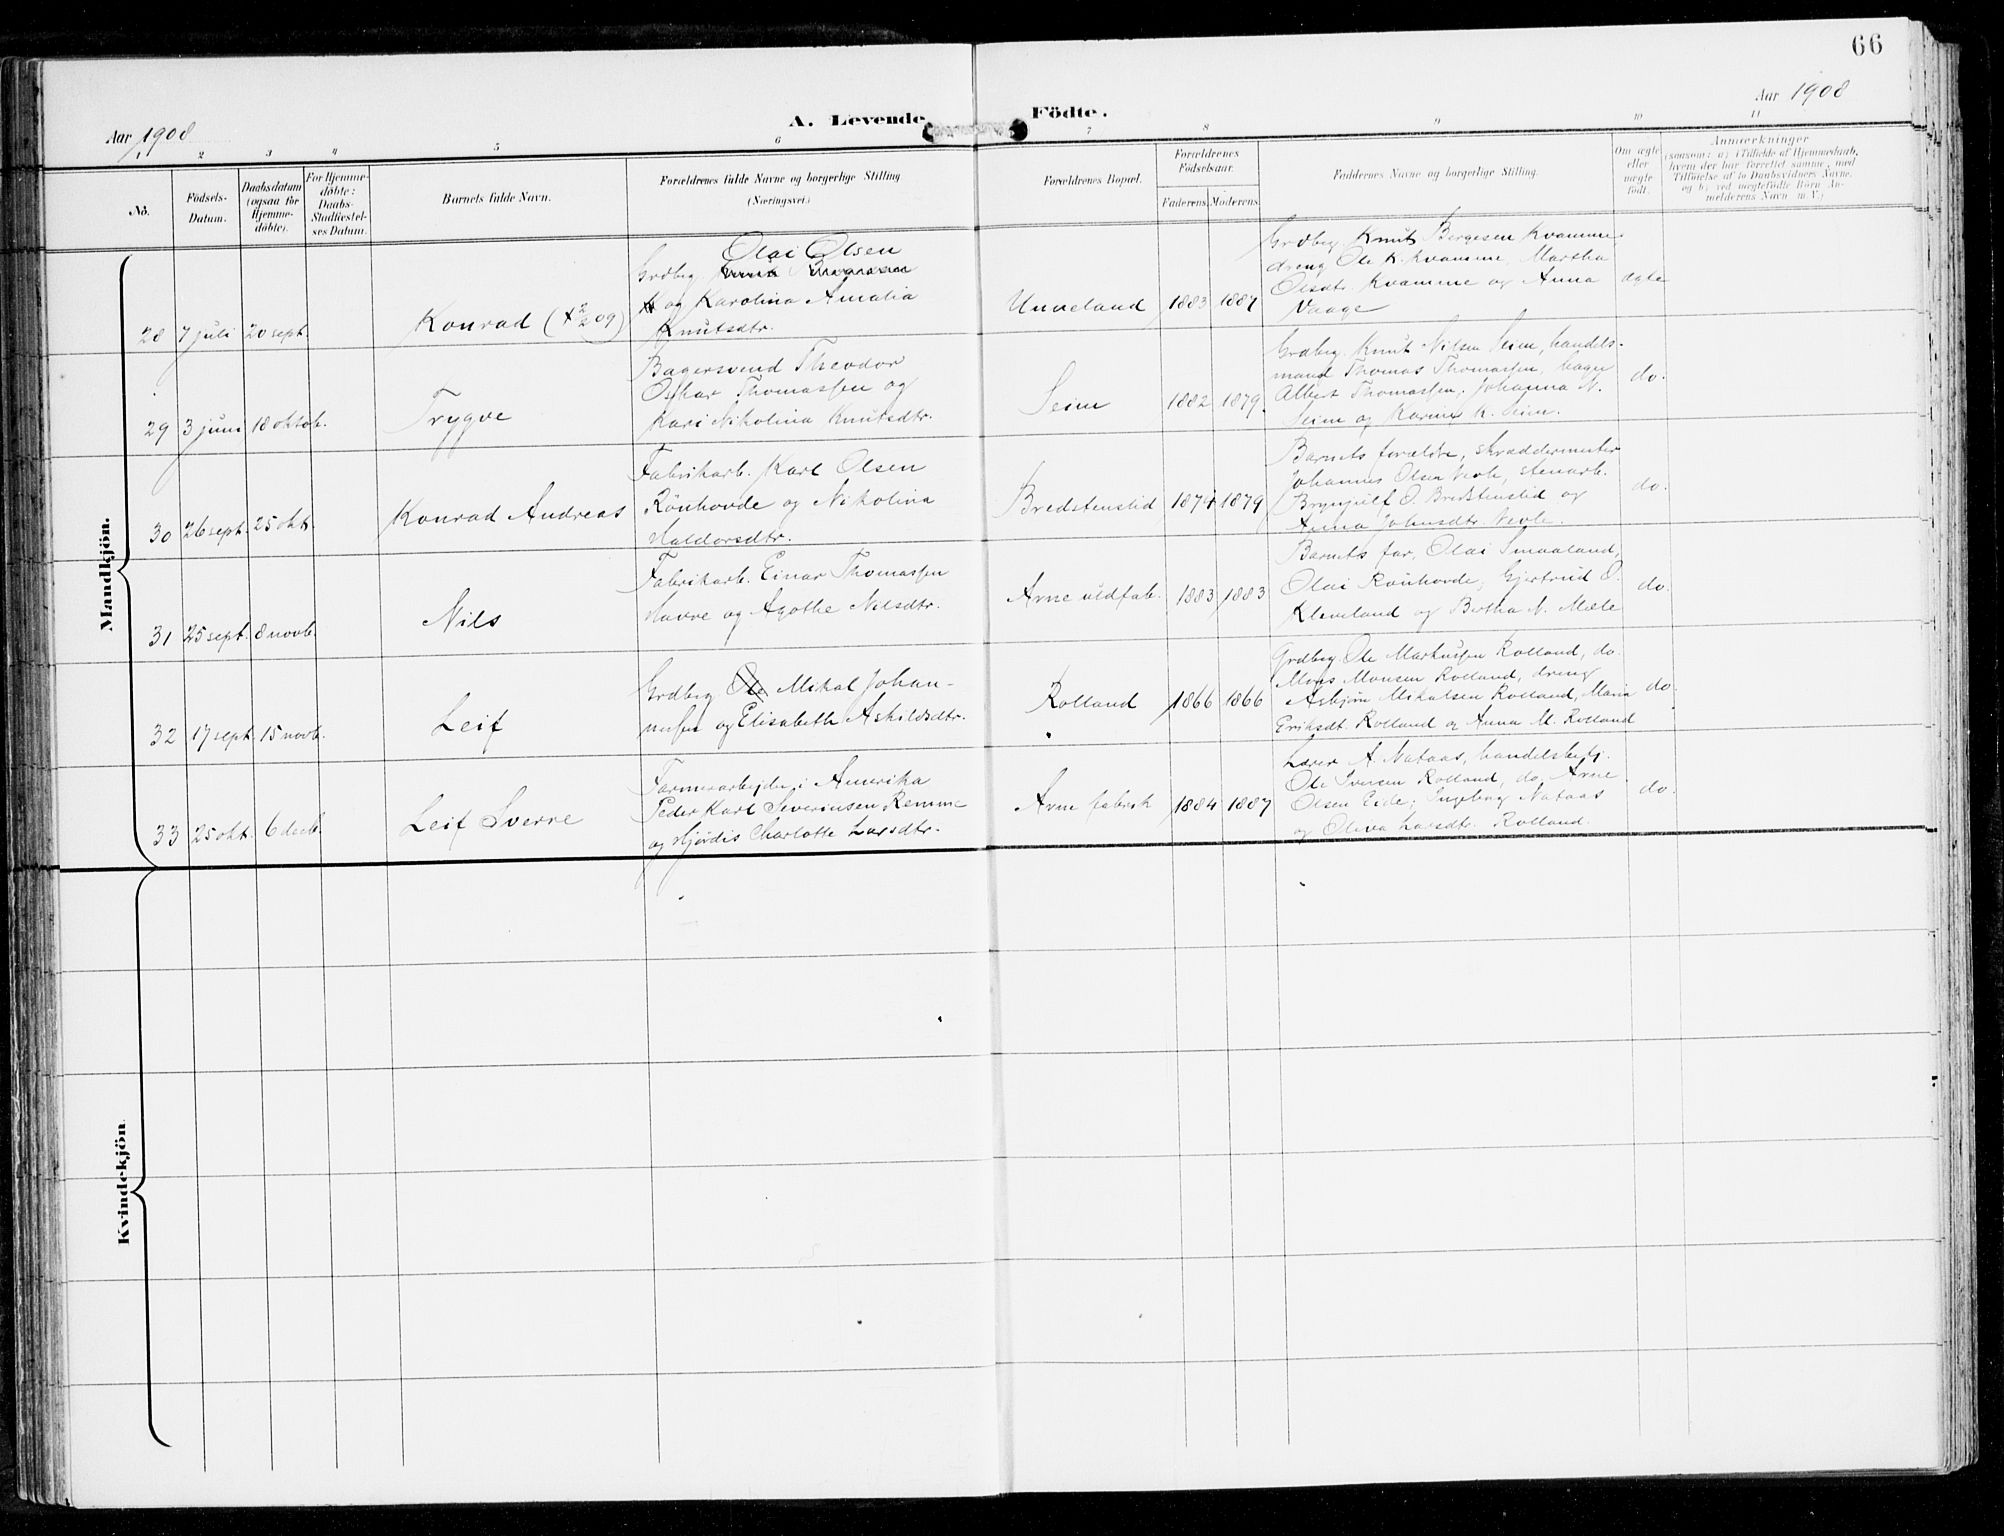 66
Aar 1908
A. Levende Födte.
Aar 1908
1 2 3 4 5 6 7 8 9 10 11
No.
Födsels-
Datum.
Daabsdatum
(ogsaa for
Hjemme-
döbte).
For Hjemme-
döbte:
Daabs-
Stadfæstel-
ses Datum.
Barnets fulde Navn.
Forældrenes fulde Navne og borgerlige Stilling
(Næringsvei.)
Forældrenes Bopæl.
Forældrenes
Födselsaar.
Faderens. Moderens.
Faddernes Navne og borgerlige Stilling.
Om ægte
eller
uægte
födt.
Anmærkninger
(saasom: a) i Tilfælde af Hjemmedaab,
hvem der har forrettet samme, med
Tilföielse af to Daabsvidners Navne,
og b) ved uægtefödte Börn An-
melderens Navn m. V.)
Mandkjön.
28 7 juli 20 sept. Konrad (+ 2/2 09)
Olai Olsen
Grdbrg.
og Karolina Amalia
Knutsdtr.
Unneland 1883 1887
Grdbrg. Knut Børgesen Kvamme
dreng Ole K. Kvamme, Martha
Olsdtr. Kvamme og Anna
Vaage
ægte
29 3 juni 18 oktob. Trygve
Bagersvend Theodor
Oskar Thomassen og
Kari Nikolina Knutsdtr.
Seim 1882 1879
Grdbrg. Knut Nilsen Seim, handels-
mand Thomas Thomassen, bager
Albert Thomassen, Johanna N.
Seim og Karine K. Seim.
do.
30 26 sept. 25 okt. Konrad Andreas
Fabrikarb. Karl Olsen
Rönhovde og Nikolina
Haldorsdtr.
Bredstenslid 1874 1879
Barnets forældre, skræddermester
Johannes Olsen Vevle, stenarb.
Brynjulf O. Bredstenslid og
Anna Johnsdtr. Vevle.
do.
31 25 sept. 8 novb. Nils
Fabrikarb. Einar Thomassen
Havre og Agathe Nilsdtr.
Arne uldfab. 1883 1883
Barnets far, Olai Smaaland,
Olai Rönhovde, Gjertrud O.
Kleveland og Bertha N. Mæle
do.
32 17 sept. 15 novb. Leif
Grdbrg. Ole Mikal Johan-
nessen og Elisabeth Askildsdtr.
Rolland 1866 1866
Grdbrg. Ole Markussen Rolland, do.
Mons Monsen Rolland, dreng
Asbjørn Mikalsen Rolland, Maria
Eriksdt. Rolland og Anna M. Rolland
do.
33 25 okt. 6 decb. Leif Sverre
Farmerarbeider i Amerika
Peder Karl Severinsen Remme
og Hjørdis Charlotte Larsdtr.
Arne fabrik 1884 1887
Lærer A. Nataas, handelsbetj.
Ole Iversen Rolland, do. Arne
Olsen Eide, Ingeborg Nataas
og Oliva Larsdtr. Rolland.
do.
Kvindekjön.